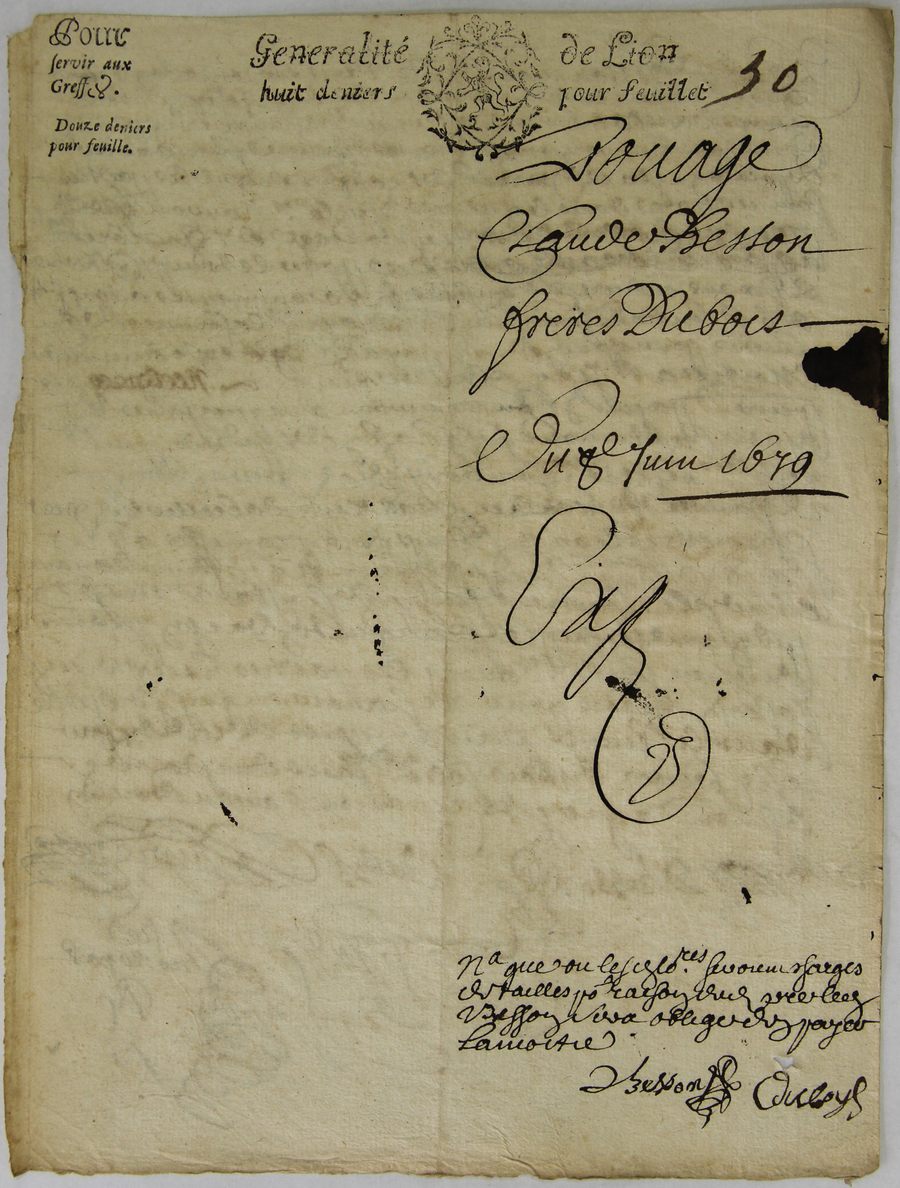 Pour
servir aux
Greff
Douze deniers
pour feuille.
Generalité de Lion
huit deniers pour feuillet
30
Louage
Claude Besson
freres Dubois
Du 8e Juin 1679
Exp
Na que ou les seroient charges
de tailles po raison dud
Besson sera oblige de payer
la moitie
Besson Duboys